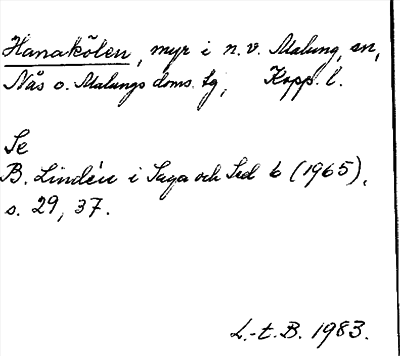 Hanakölen, myr i n.v. Malung, sn,
Nås o. Malungs doms. tg, Kopp. l.
Se
B. Lindén i Saga och Sed 6 (1965),
s. 29, 37.
L.-t.B. 1983.